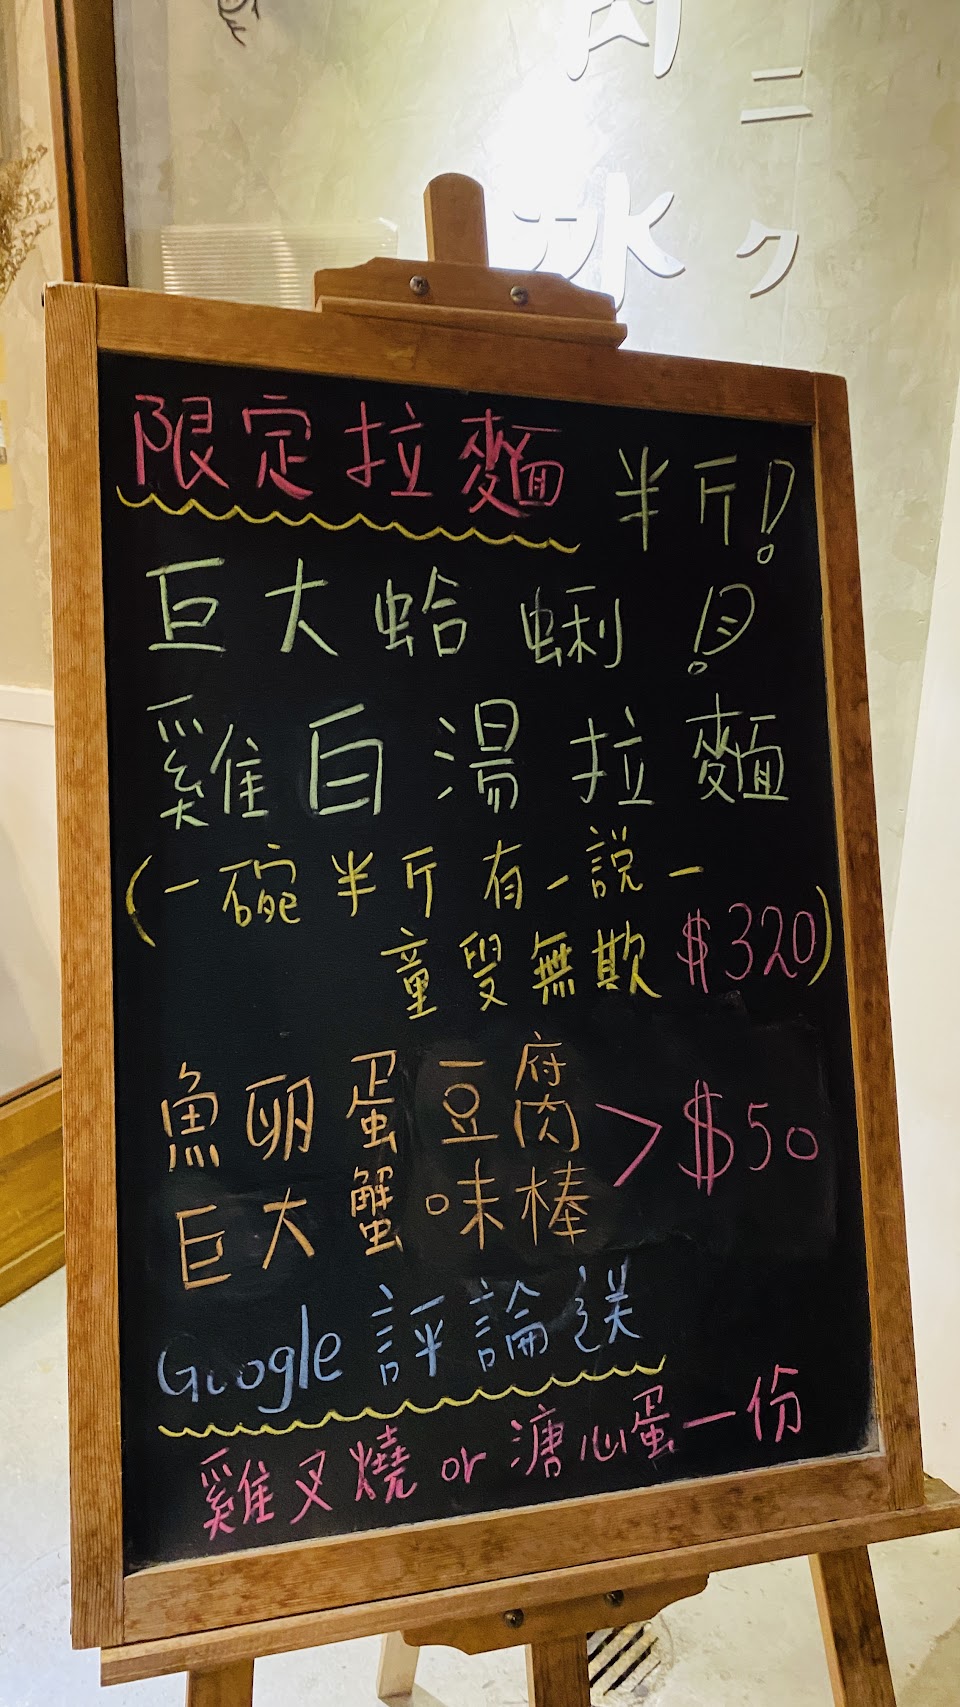 肉 二
冰 ク
限定拉麵 半斤!
巨大蛤蜊!
雞白湯拉麵
(一碗半斤有一說一
童叟無欺 $320)
魚卵蛋豆腐
巨大蟹味棒 > $50
Google 評論送
雞叉燒 or 溏心蛋一份